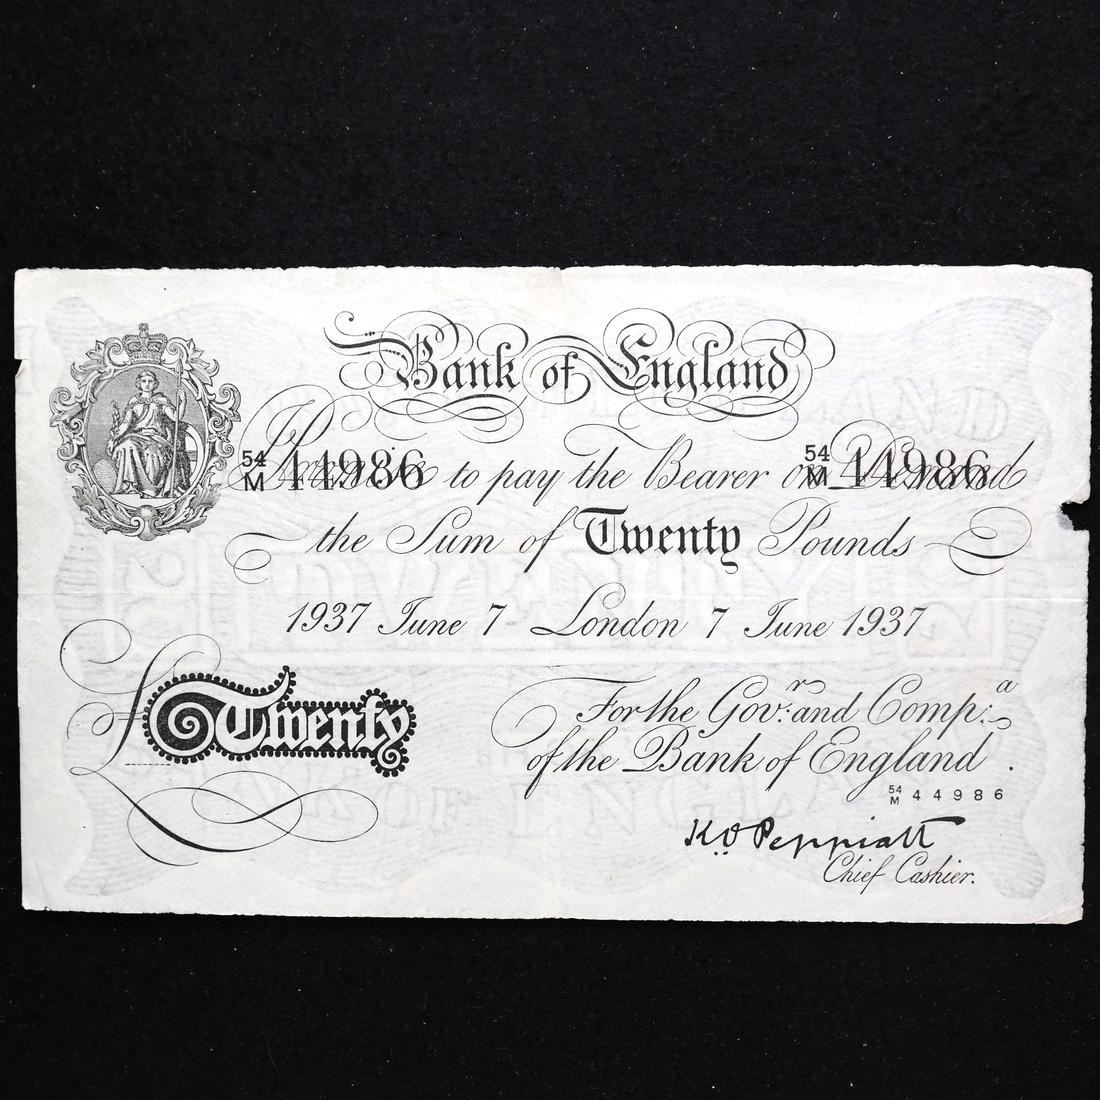 Bank of England
54
M 44986 I Promise to pay the Bearer on Demand 54
M 44986
the Sum of Twenty Pounds
1937 June 7 London 7 June 1937
£Twenty
For the Govr: and Compa:
of the Bank of England.
54
M 44986
K O Peppiatt
Chief Cashier.